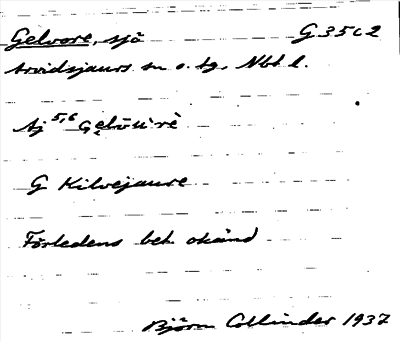 Gelvore, sjö G 35 c 2
Arvidsjaurs sn o. tg, Nbt l.
Aj 5,6
G Kilvejaure
Förledens bet. okänd
Björn Collinder 1937